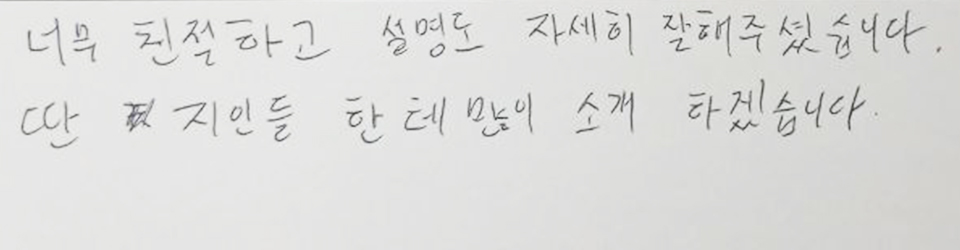 너무 친절하고 설명도 자세히 잘해주셨습니다.
딴 지인들 한테 많이 소개 하겠습니다.